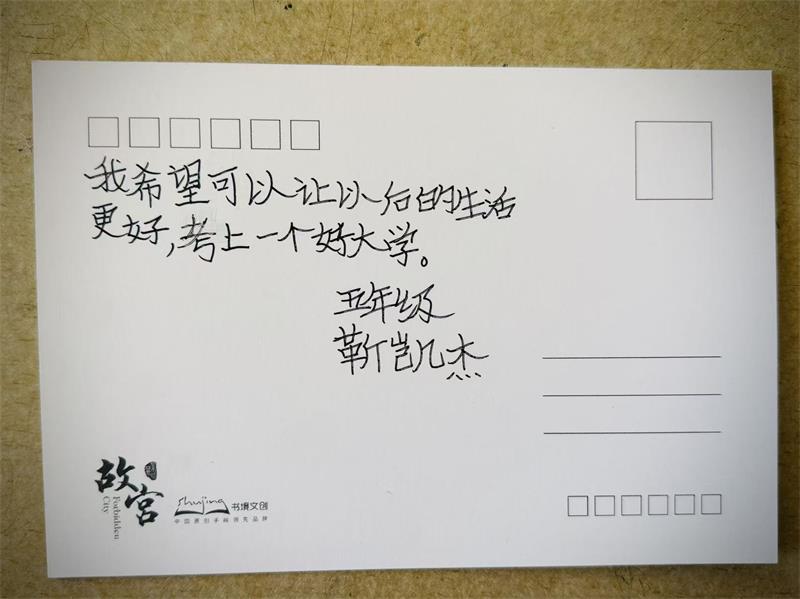 我希望可以让以后的生活
更好,考上一个好大学。
五年级
靳凯杰
故宫
Forbidden
City
shujing 书境文创
中国原创手绘领先品牌